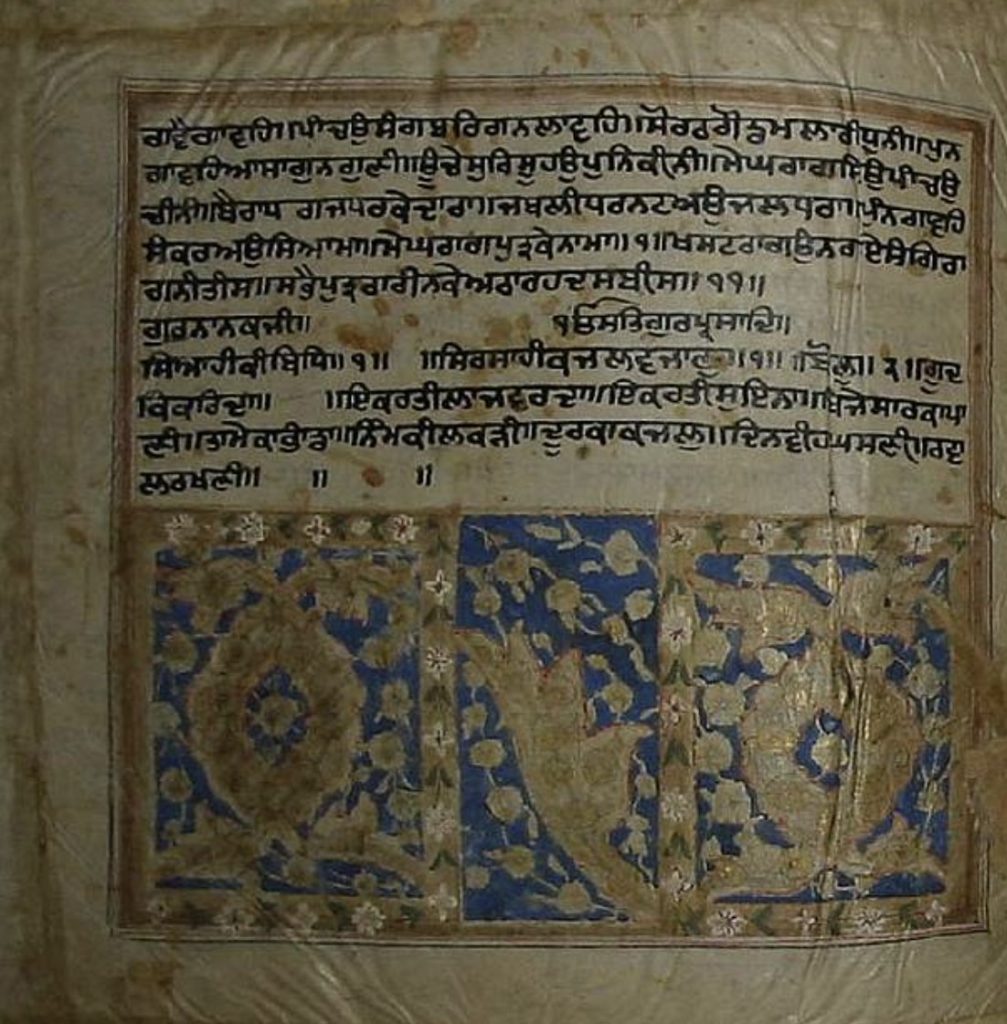 ਗਾਵੈਗਾਵਹਿ॥ਪਾਂਚਉਸੰਗਬਰਿਗਨਲਾਵਹਿ॥ਸੋਰਠਗੋਂਡਮਲਾਰੀਧੁਨੀ॥ਪੁਨ
ਗਾਵਹਿਆਸਾਗੁਨਗੁਣੀ॥ਊਚੇਸੁਰਿਸੂਹਉਪੁਨਿਕੀਨੀ॥ਮੇਘਰਾਗਸਿਉਪਾਂਚਉ
ਚੀਨੀ॥ਬੈਰਾਧਰਗਜਧਰਕੇਦਾਰਾ॥ਜਬਲੀਧਰਨਟਅਉਜਲਧਾਰਾ॥ਪੁਨਗਾਵਹਿ
ਸੰਕਰਅਉਸਿਆਮਾ॥ਮੇਘਰਾਗਪੁਤ੍ਰਕੇਨਾਮਾ॥੧॥ਖਸਟਰਾਗਉਨਗਾਏਸੰਗਿਰਾ
ਗਨੀਤੀਸ॥ਸਭੈਪੁਤ੍ਰਰਾਗੀਨਕੇਅਠਾਰਹਦਸਬੀਸ॥੧॥੧॥
ਗੁਰਨਾਨਕਜੀ॥ ੴਸਤਿਗੁਰਪ੍ਰਸਾਦਿ॥
ਸਿਆਹੀਕੀਬਿਧਿ॥੧॥ ॥ਸਿਰਸਾਹੀਕਜਲਵਜਾਲੂ॥੧॥ ॥ਬੋਲੁ॥੨॥ਗੂੰਦ
ਕਿਕਰਿਦਾ॥ ॥ਇਕਰਤੀਲਾਜਵਰਦਾ॥ਇਕਰਤੀਸੁਇਨਾ॥ਬਿਜੈਸਾਰਕਾਪਾ
ਣੀ॥ਤਾਮੇਕਾਭਾਂਡਾ॥ਨਿੰਮਕੀਲਕੜੀ॥ਦੂਰਕਾਕਜਲੁ॥ਦਿਨਵੀਹਘਸਣੀ॥ਰਵਾ
ਲਰਖਣੀ॥ ॥ ॥